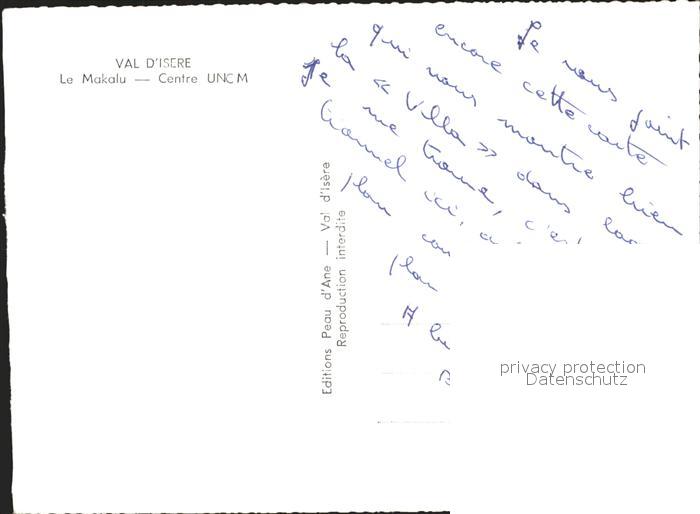 VAL D'ISERE
Le Makalu — Centre UNCM
Editions Peau d'Ane — Val d'Isère
Reproduction interdite
Je vous joint
encore cette carte
qui vous montre bien
la « Villa » dans la
Je me trouve, c'est
ici, a
plan
plan
A
privacy protection
Datenschutz